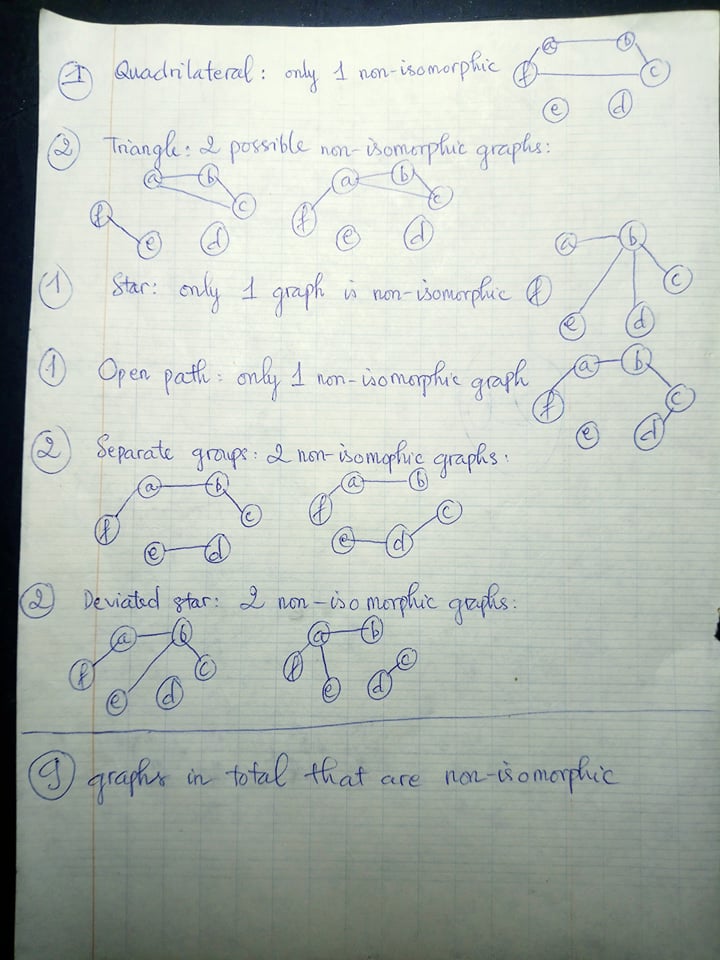 1 Quadrilateral: only 1 non-isomorphic
a b
f c
e d
2 Triangle: 2 possible non-isomorphic graphs:
a b a b
f c f c
e d e d
1 Star: only 1 graph is non-isomorphic
a b
f c
e d
1 Open path: only 1 non-isomorphic graph
a b
f c
e d
2 Separate groups: 2 non-isomophic graphs:
a b a b
f c f c
e d e d
2 Deviated star: 2 non-isomorphic graphs:
a b a b
f c f c
e d e d
9 graphs in total that are non-isomorphic